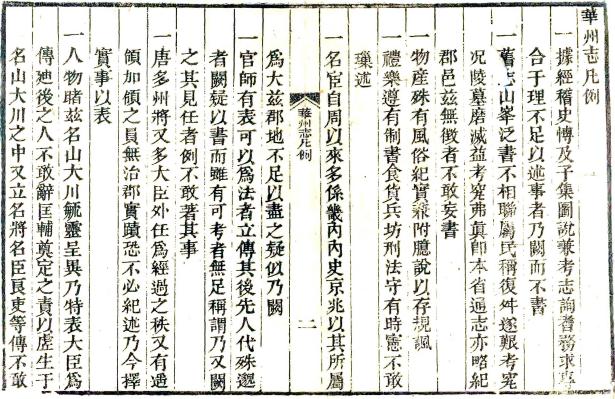 華州志凡例
一據經稽史傳及子集圖說兼考志詢耆務求專
合于理不足以述事者乃闕而不書
一舊志山峯泛書不相聯屬民稱復舛遂艱考究
况陵墓磨滅益考究弗真即本省通志亦略紀
郡邑茲無徵者不敢妄書
一物産殊有風俗紀實兼附臆說以存規諷
一禮樂遵有制書食貨兵坊刑法守有時憲不敢
述
一名宦自周以來多係畿內內史京兆以其所屬
華州志凡例 二
爲大茲郡地不足以盡之疑似乃闕
一官師有表可以爲法者立傳其後先人代殊邈
者闕疑以書而雖有可考者無足稱謂乃又闕
之其見任者例不敢著其事
一唐多州將又多大臣外任爲經過之秩又有遙
領加領之員無治郡實蹟恐不必紀述乃今擇
實事以表
一人物睹茲名山大川毓靈呈異乃特表大臣爲
傳迪後之人不敢辭匡輔奠定之責以虛生于
名山大川之中又立名將名臣良吏等傳不敢